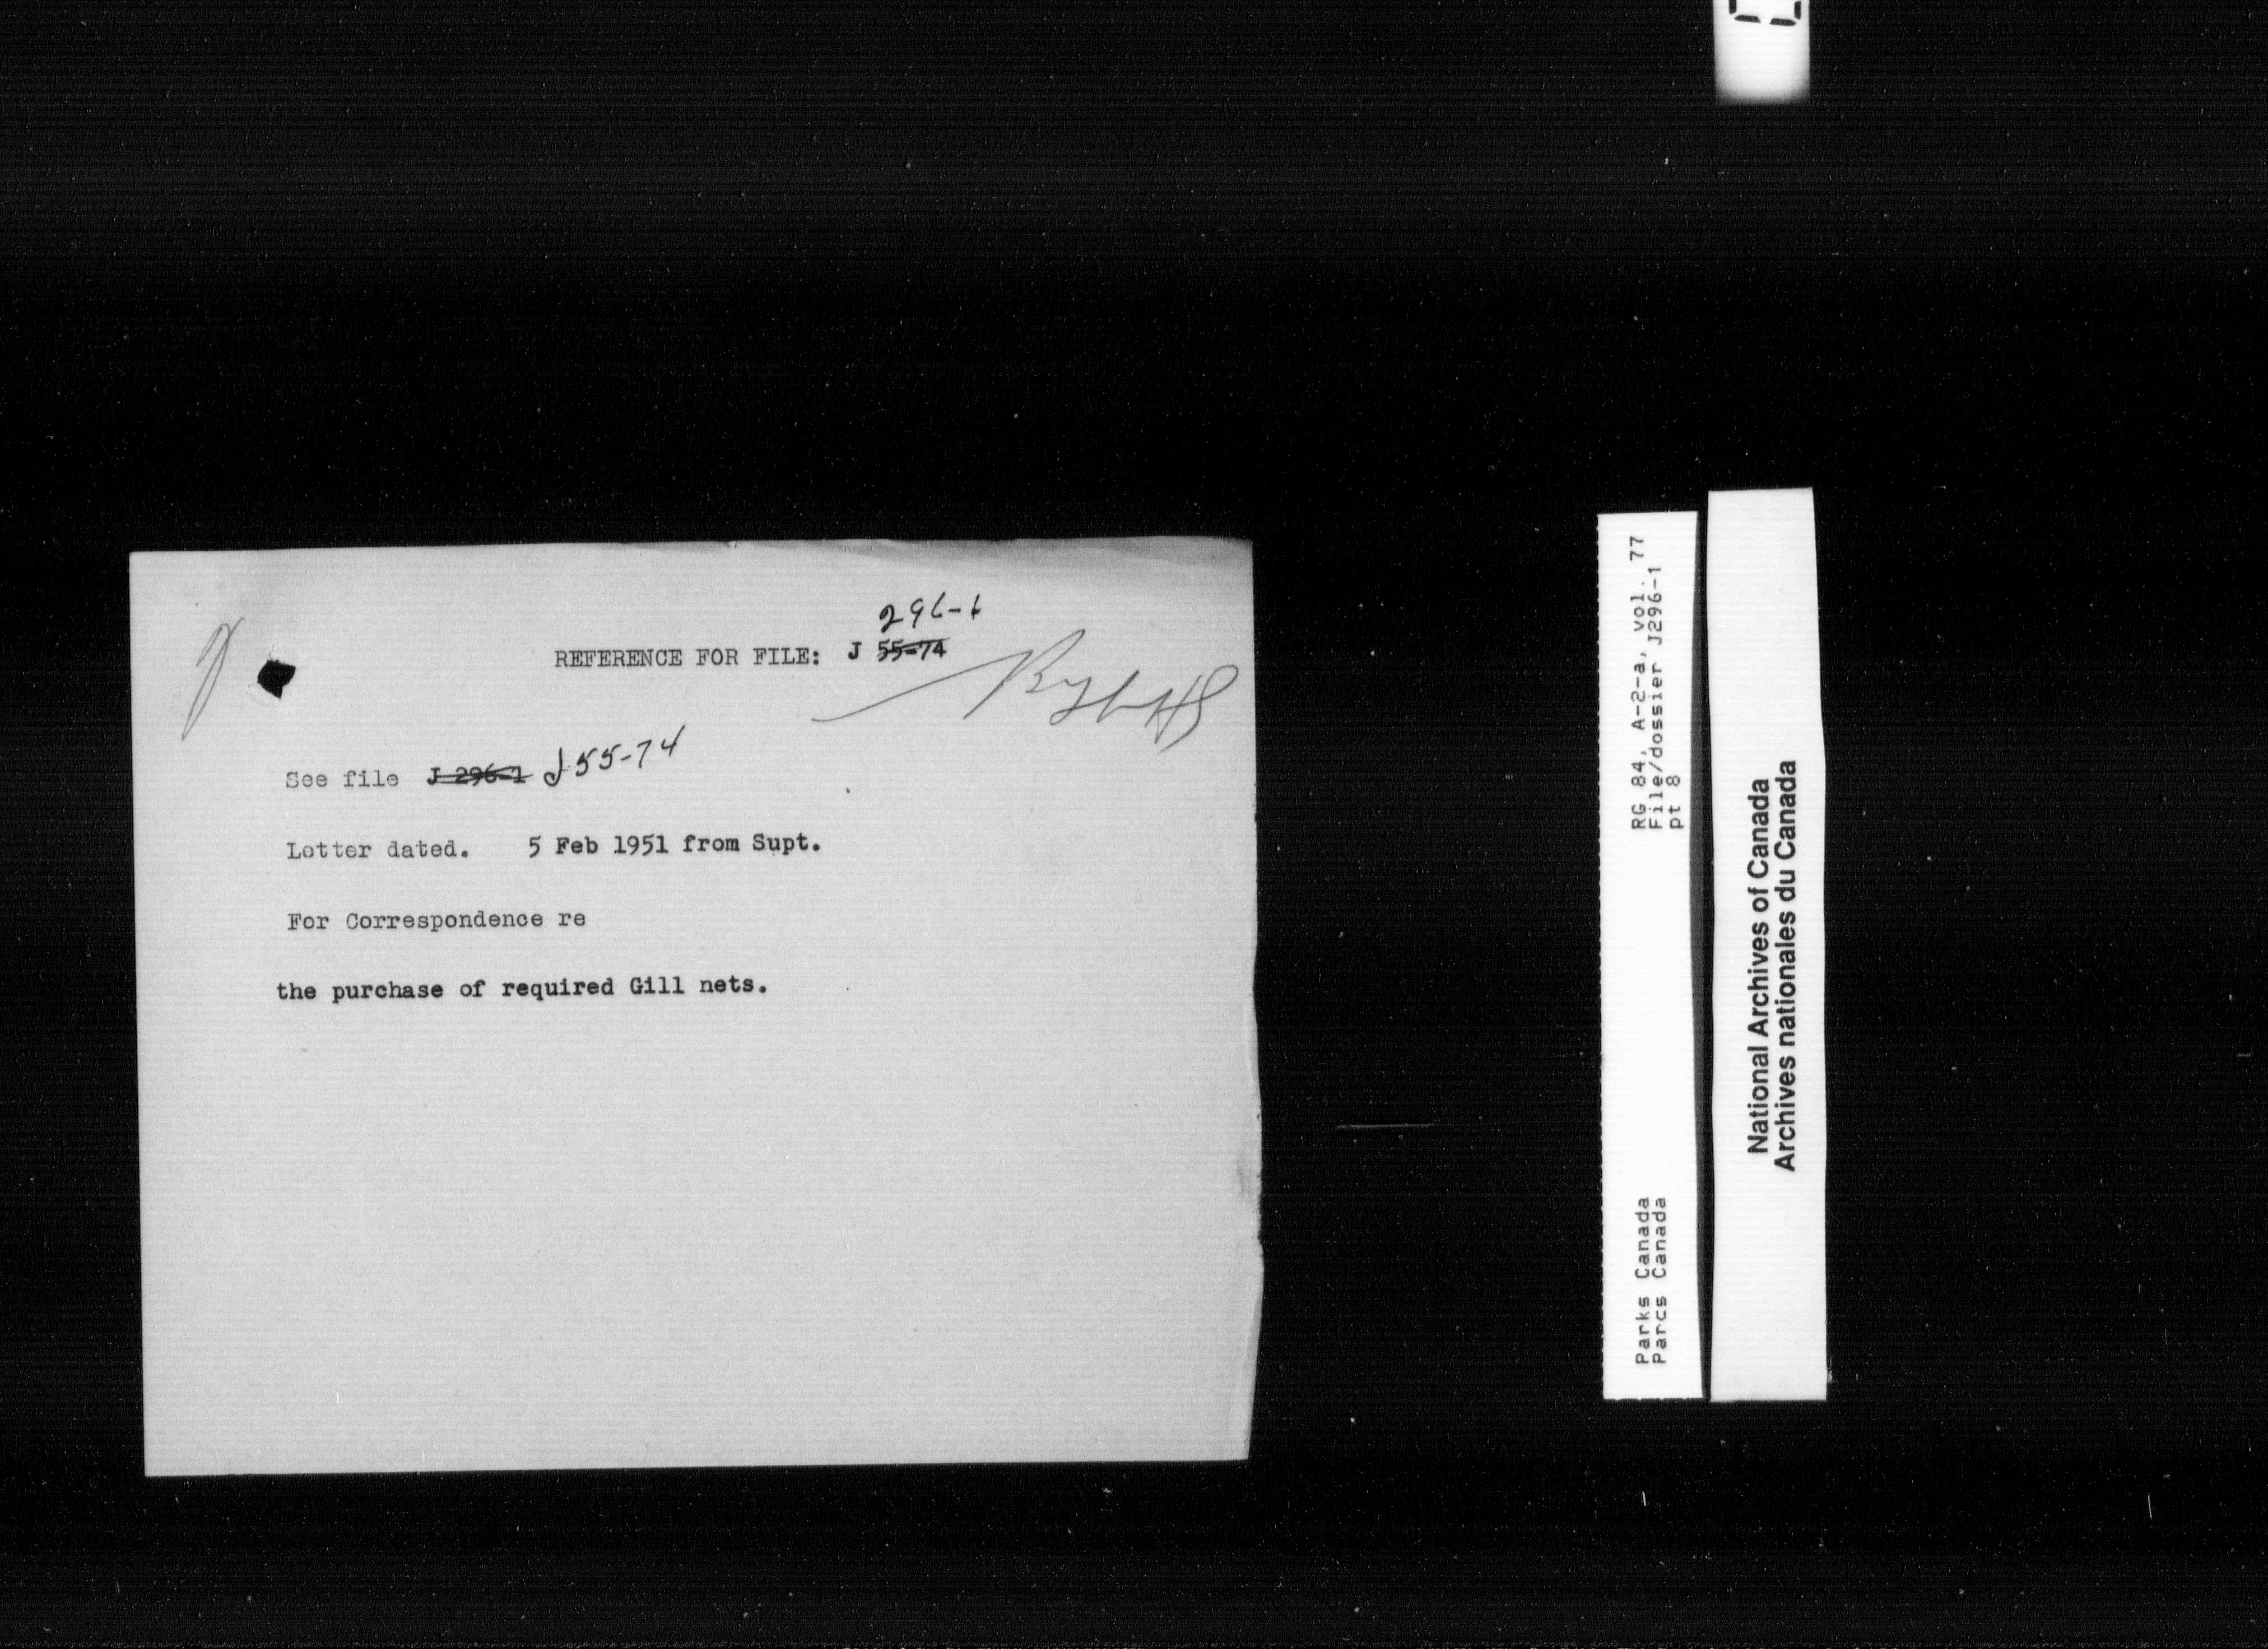 296-1
REFERENCE FOR FILE: J 55-74
See file J 296-1 J55-74
Letter dated. 5 Feb 1951 from Supt.
For Correspondence re
the purchase of required Gill nets.
RG 84, A-2-a, vol. 77
File/dossier J296-1
pt 8
Parks Canada
Parcs Canada
National Archives of Canada
Archives nationales du Canada